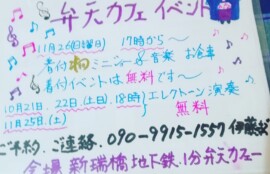 弁天カフェイベント
11月26(日曜日) 17時05〜
音楽 お食事
イベントは無料です〜
10月21日. 22日.(土日).18時 エレクトーン演奏
11月25日.(土) 無料
ご予約.ご連絡. 090-9915-1557 伊藤
会場 新瑞橋地下鉄.1分弁天カフェー